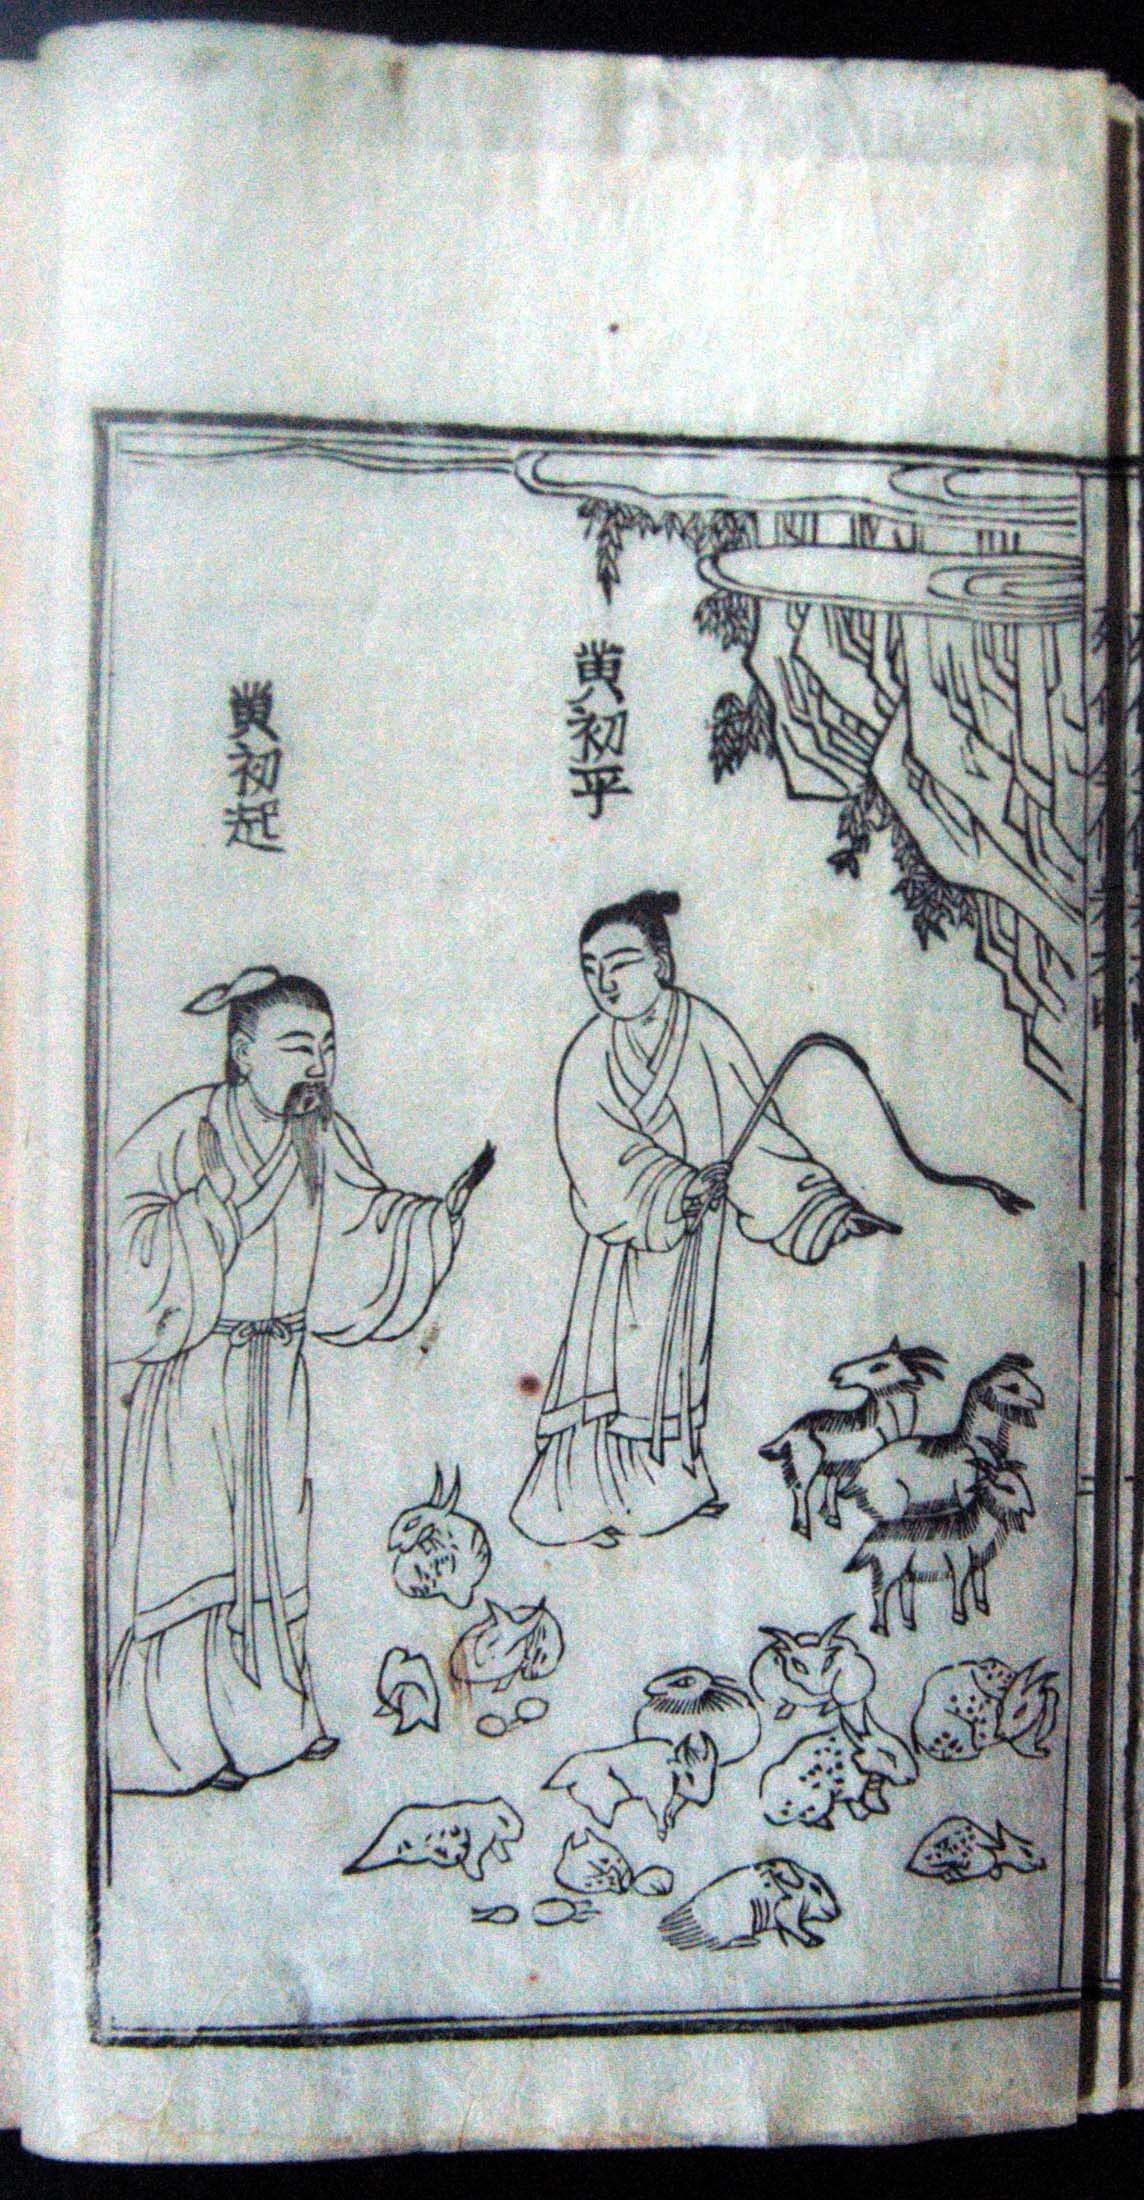 黄初平
黄初起